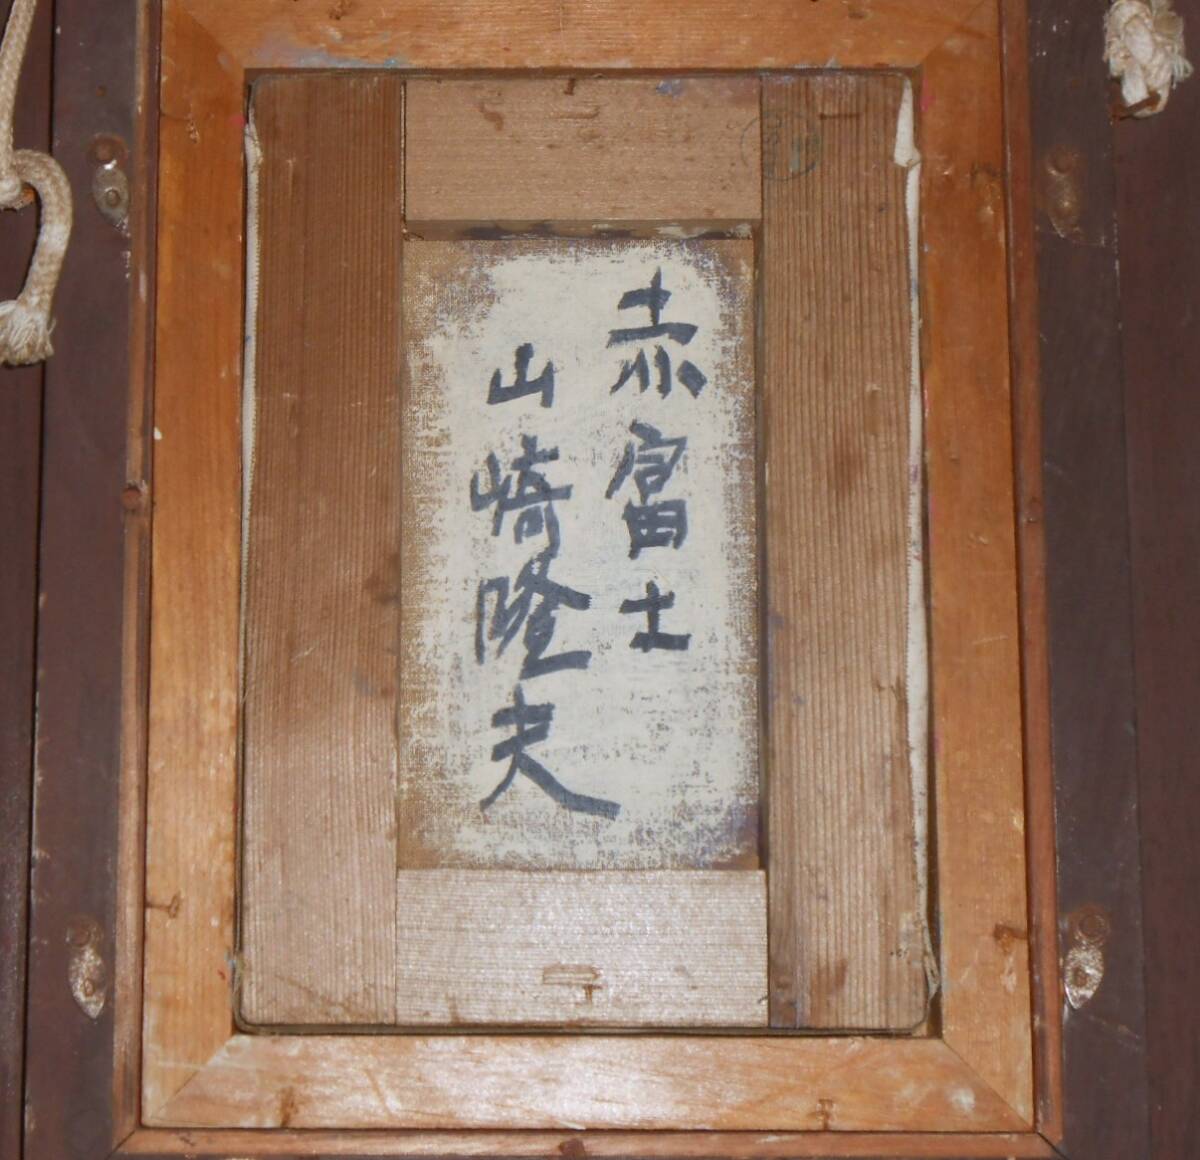 赤富士
山崎隆夫